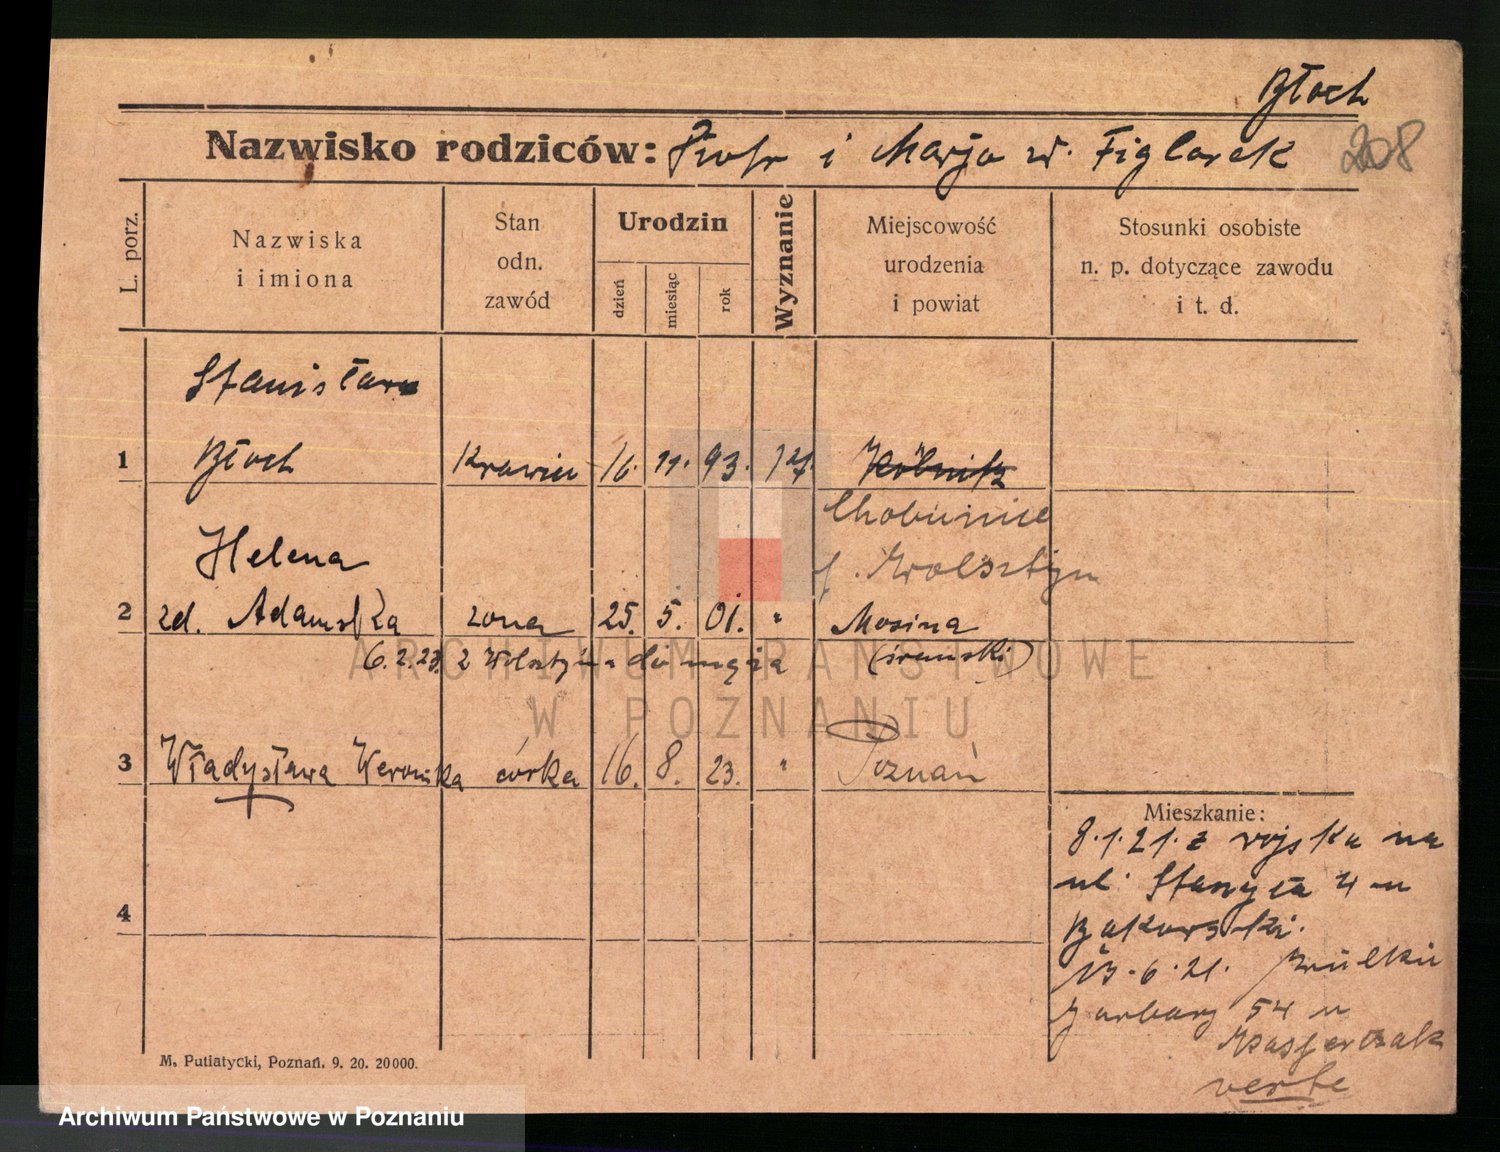 Błoch
208
Nazwisko rodziców: Piotr i Marja z d. Figlarek
L. porz.
Nazwiska
i imiona
Stan
odn.
zawód
Urodzin
dzień
miesiąc
rok
Wyznanie
Miejscowość
urodzenia
i powiat
Stosunki osobiste
n. p. dotyczące zawodu
i t. d.
Stanisław
1 Błoch krawiec 16. 11. 93. kat.
Chobienice
p. Wolsztyn
Helena
2 zd. Adamska żona 25. 5. 01. " Mosina
6.2.23. z Wolsztyna do męża (śremski)
3 Władysława Weronika córka 16. 8. 23. " Poznań
4
Mieszkanie:
8.1.21. z wojska na
ul. Staszyca 4 u
Bąkowski.
13.6.21. Wielkie
Garbary 54 u
Kasperczak
verte
M. Putiatycki, Poznań. 9. 20. 20000.
ARCHIWUM PAŃSTWOWE
W POZNANIU
Archiwum Państwowe w Poznaniu